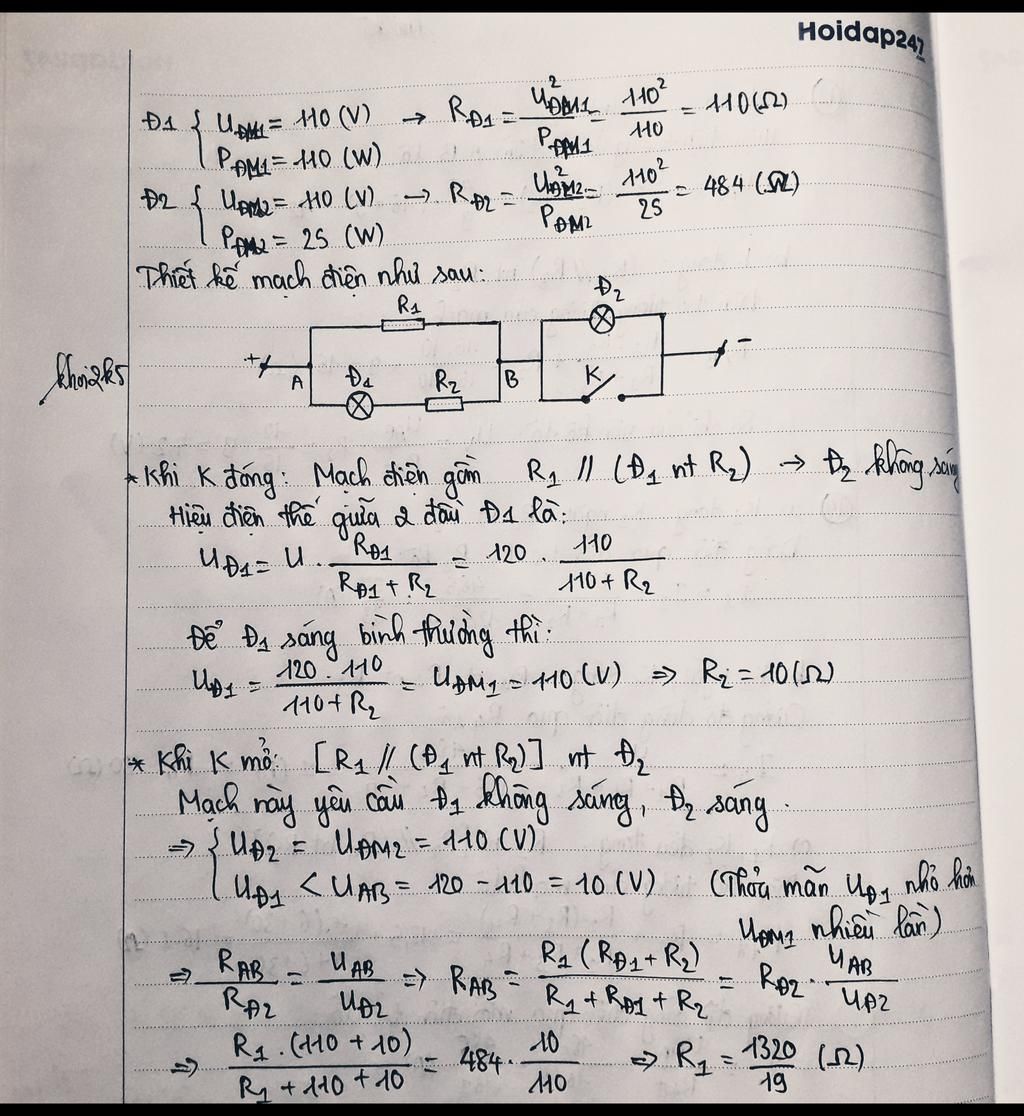 Hoidap247
Đ1 { UĐM1 = 110 (V) → RĐ1 = U²ĐM1 / PĐM1 = 110² / 110 = 110 (Ω)
PĐM1 = 110 (W)
Đ2 { UĐM2 = 110 (V) → RĐ2 = U²ĐM2 / PĐM2 = 110² / 25 = 484 (Ω)
PĐM2 = 25 (W)
Thiết kế mạch điện như sau:
R1 Đ2
+ A Đ1 R2 B K -
khoi2k5
* Khi K đóng: Mạch điện gồm R1 // (Đ1 nt R2) → Đ2 không sáng
Hiệu điện thế giữa 2 đầu Đ1 là:
UĐ1 = U . RĐ1 / (RĐ1 + R2) = 120 . 110 / (110 + R2)
Để Đ1 sáng bình thường thì:
UĐ1 = 120 . 110 / (110 + R2) = UĐM1 = 110 (V) ⇒ R2 = 10 (Ω)
* Khi K mở: [R1 // (Đ1 nt R2)] nt Đ2
Mạch này yêu cầu Đ1 không sáng, Đ2 sáng.
⇒ { UĐ2 = UĐM2 = 110 (V)
UĐ1 < UAB = 120 - 110 = 10 (V) (Thỏa mãn UĐ1 nhỏ hơn
UĐM1 nhiều lần)
⇒ RAB / RĐ2 = UAB / UĐ2 ⇒ RAB = R1 (RĐ1 + R2) / (R1 + RĐ1 + R2) = RĐ2 . UAB / UĐ2
⇒ R1 . (110 + 10) / (R1 + 110 + 10) = 484 . 10 / 110 ⇒ R1 = 1320 / 19 (Ω)